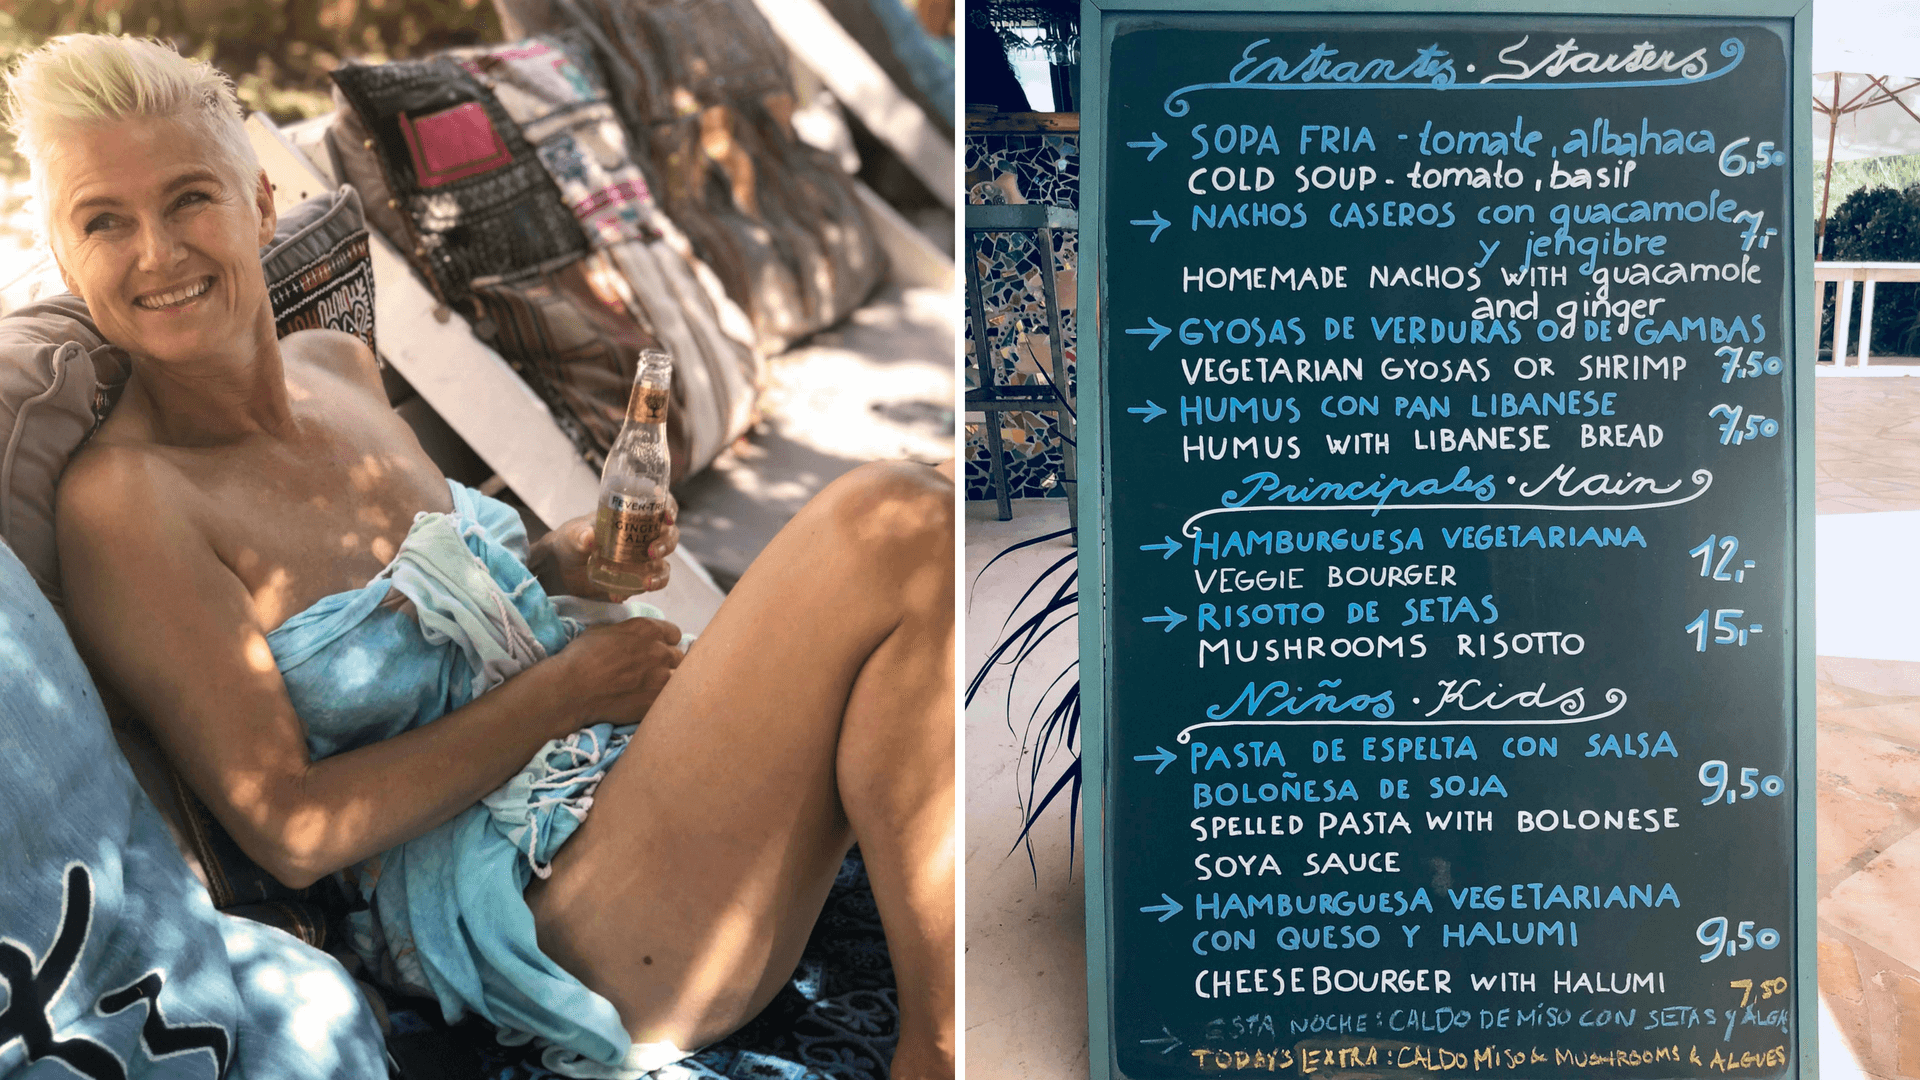 FEVER-TR
GINGER
ALE
Entrantes · Starters
→ SOPA FRIA - tomate, albahaca 6,50
COLD SOUP - tomato, basil
→ NACHOS CASEROS con guacamole 7,-
y jengibre
HOMEMADE NACHOS WITH guacamole
and ginger
→ GYOSAS DE VERDURAS O DE GAMBAS
VEGETARIAN GYOSAS OR SHRIMP 7,50
→ HUMUS CON PAN LIBANESE
HUMUS WITH LIBANESE BREAD 7,50
Principales · Main
→ HAMBURGUESA VEGETARIANA
VEGGIE BOURGER 12,-
→ RISOTTO DE SETAS
MUSHROOMS RISOTTO 15,-
Niños · Kids
→ PASTA DE ESPELTA CON SALSA
BOLOÑESA DE SOJA 9,50
SPELLED PASTA WITH BOLONESE
SOYA SAUCE
→ HAMBURGUESA VEGETARIANA
CON QUESO Y HALUMI 9,50
CHEESEBOURGER WITH HALUMI
7,50
→ ESTA NOCHE: CALDO DE MISO CON SETAS Y ALGA
TODAY'S EXTRA: CALDO MISO & MUSHROOMS & ALGUES